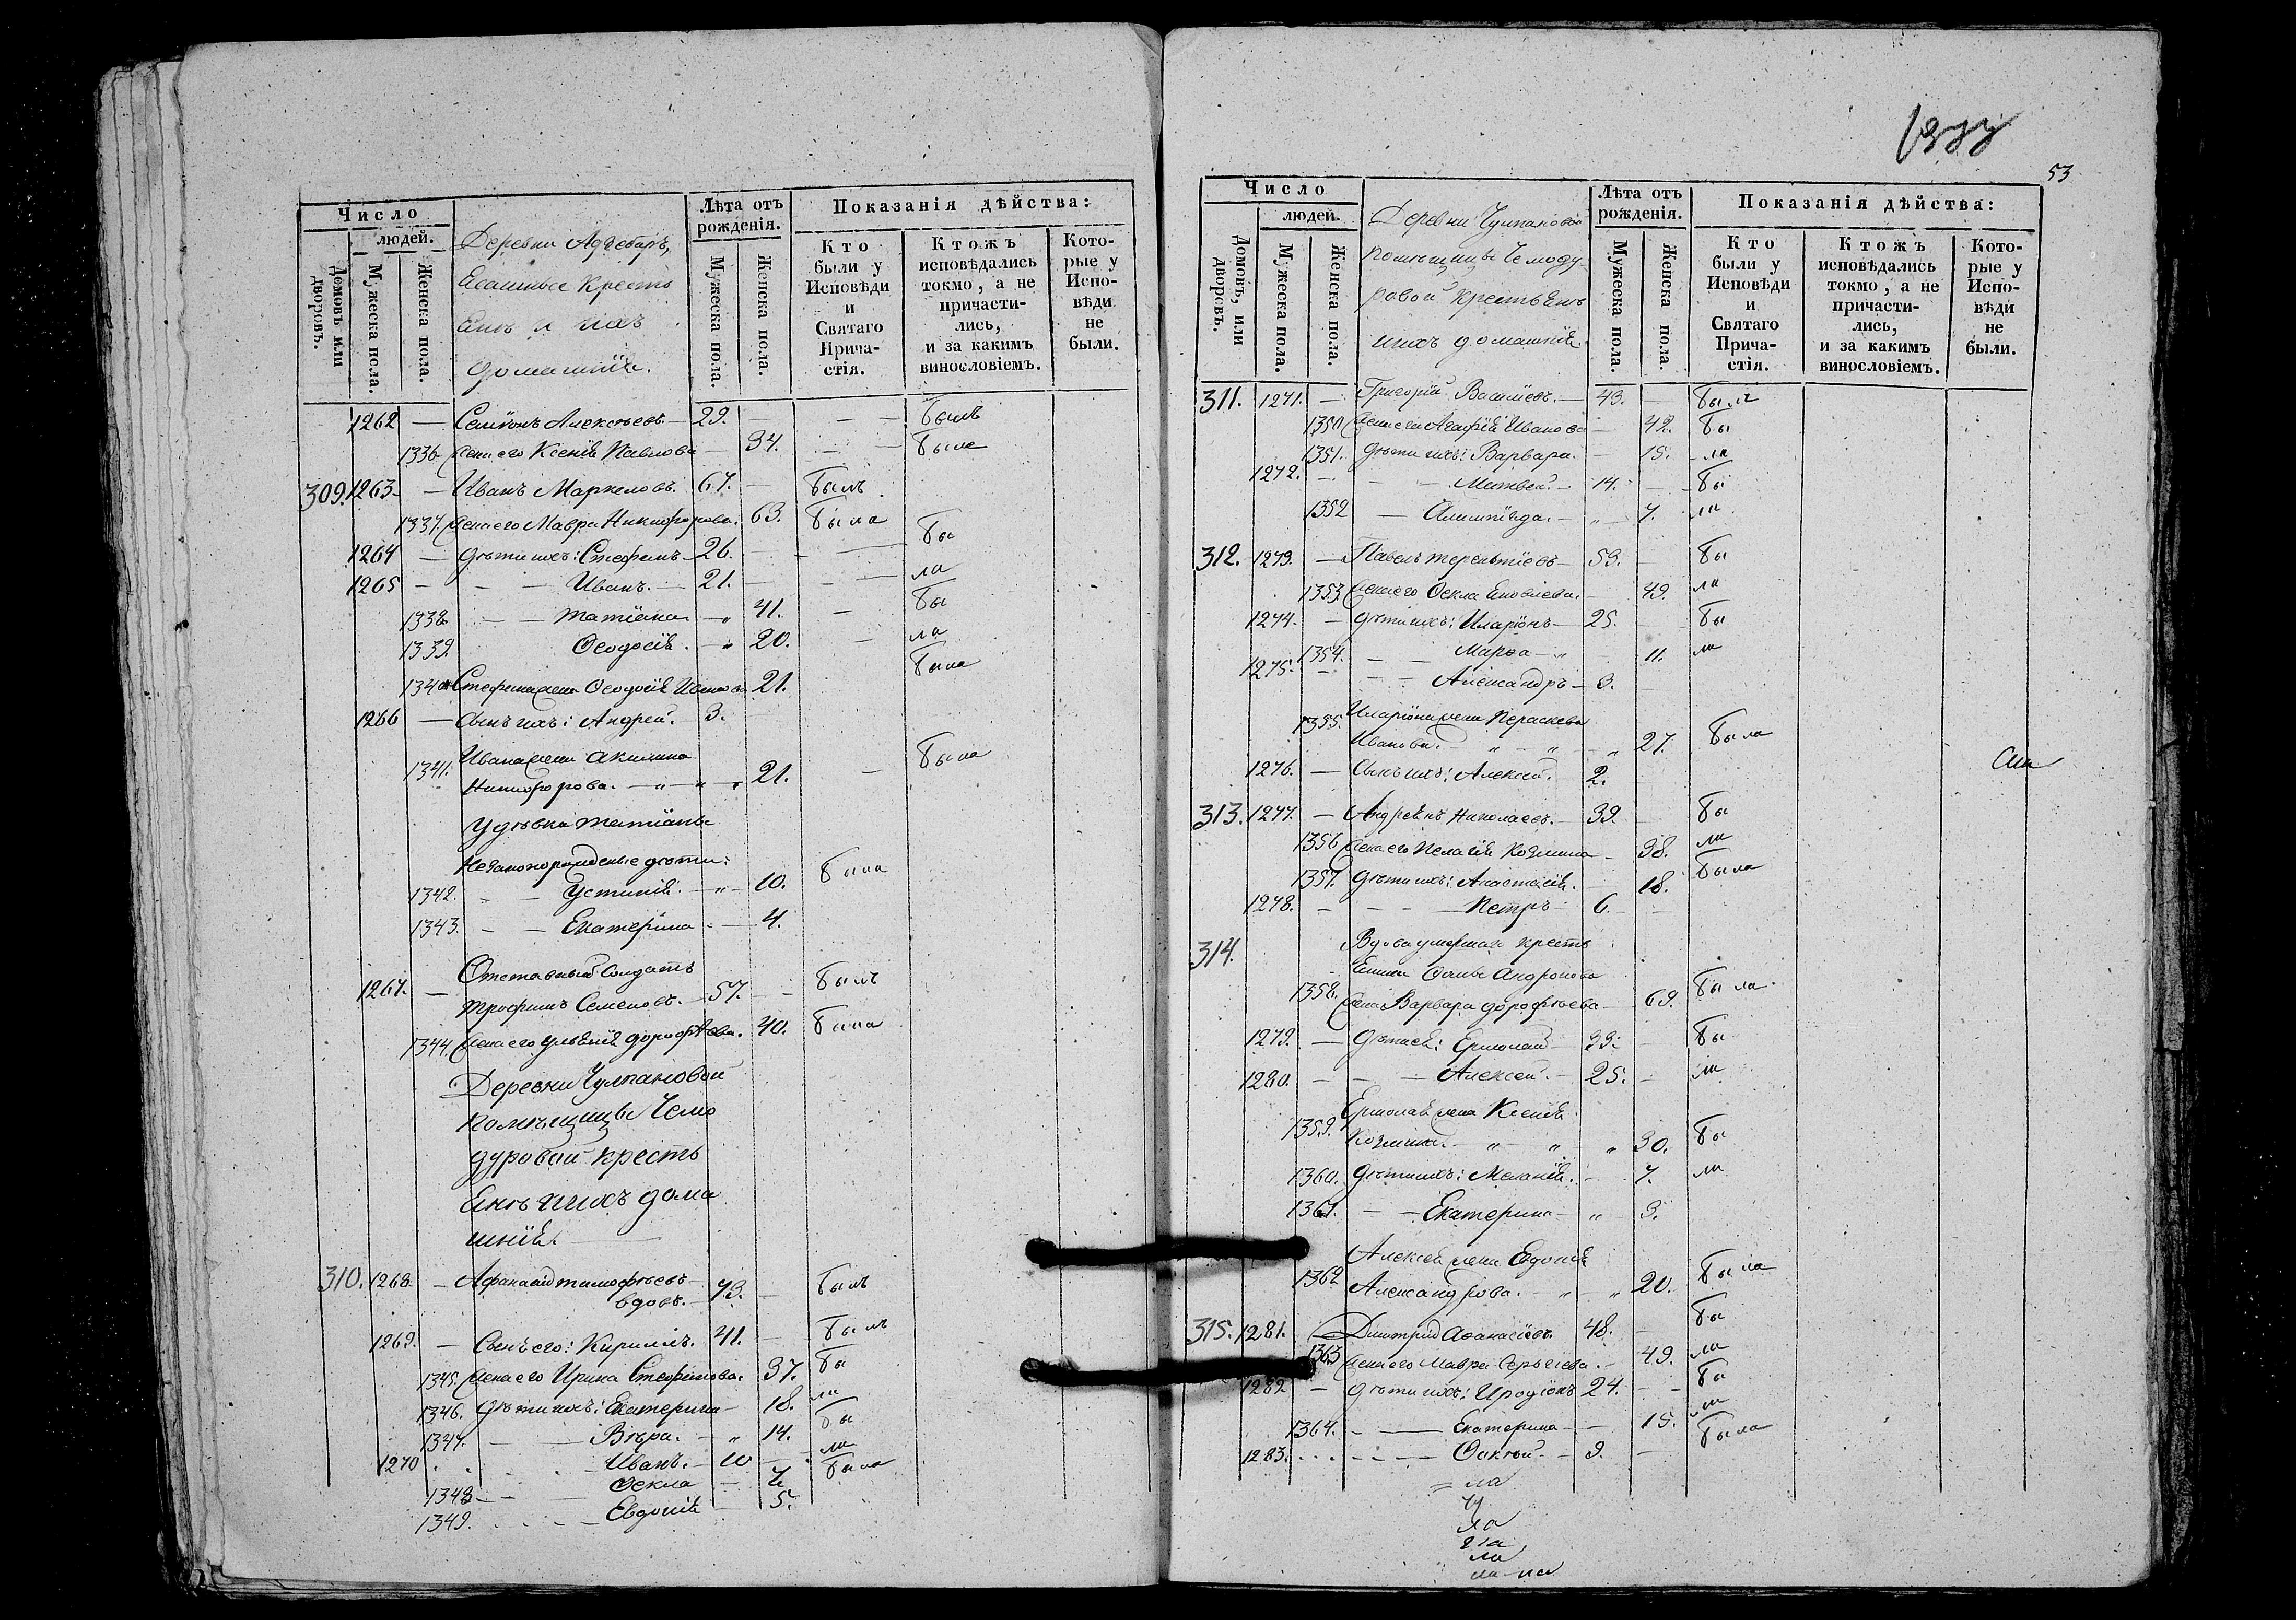 Число
людей.
Домовъ или дворовъ.
Мужеска пола.
Женска пола.
Деревни
крестъ
янъ и ихъ
домашнія.
Лѣта отъ рожденія.
Мужеска пола.
Женска пола.
Показанія дѣйства:
Кто были у Исповѣди и Святаго Прича-стія.
Ктожъ исповѣдались токмо, а не причасти-лись, и за какимъ винословіемъ.
Кото-рые у Испо-вѣди не были.
1262 — Симіонъ Алексѣевъ — 29. — — былъ
1336 Жена его Ксенія Павлова — 34. — была
309. 1263 — Иванъ Маркеловъ. 67. — былъ
1337. Жена его Мавра Никифорова. 63. была
1264 — дѣти ихъ: Стефанъ — 26. — бы
1265 — — Иванъ. — 21. — — ли
1338 — — Татіана — „ 41. — бы
1339. Ѳеодосія. — „ 20. — ли
1340 Стефана жена Ѳеодосія Иванова 21. была
1266 — Сынъ ихъ: Андрей. — 3.
Ивана жена Акилина
1341. Никифорова. — „ — „ 21. — была
У дѣвки Татіаны
незаконорожденые дѣти:
1342. — Устинія. — „ — 10. была
1343. — — Екатерина — 4.
Отставный Солдатъ
1267. — Трофимъ Семеновъ. — 57. — былъ
1344. Жена его Улянія Дорофѣева. 40. была
Деревни Чулпановой
помѣщицы Чемо
дуровой крестъ
янъ и ихъ дома
шнія.
310. 1268 — Афанасій Тимофѣевъ
вдовъ. — 73. — былъ
1269. — Сынъ его: Кириллъ. 41. — былъ
1345. Жена его Ирина Стефанова. 37. бы
1346. Дѣти ихъ: Екатерина — 18. ли
1347. — Вѣра. — „ 14. бы
1270 Иванъ. — 10 — ли
1348 — — Ѳекла — 7. была
1349. — Евдокія 5.
1377
53
Число
людей.
Домовъ, или дворовъ.
Мужеска пола.
Женска пола.
Деревни Чулпановой
помѣщицы Чемоду
ровой крестьянъ
и ихъ домашнія.
Лѣта отъ рожденія.
Мужеска пола.
Женска пола.
Показанія дѣйства:
Кто были у Исповѣди и Святаго Прича-стія.
Ктожъ исповѣдались токмо, а не причасти-лись, и за какимъ винословіемъ.
Кото-рые у Испо-вѣди не были.
311. 1271. — Григорій Васильевъ. — 43. — былъ
1350 Жена его Агафія Иванова — 42. бы
1351. Дѣти ихъ: Варвара. — 15. — ли
1272. — — Матвей. — 14. — бы
1352 — Олимпіада. — „ — 7. ли
312. 1273. — Павелъ Терентіевъ — 53. — бы
1353 Жена его Ѳекла Яковлева. — 49. ли
1274. — дѣти ихъ: Иларіонъ — 25. — бы
1354. — — Марѳа — „ — 11. ли
1275. — — Александръ — 3.
Иларіона жена Параскева
1355. Иванова. — „ — „ — „ 27. была
1276. — Сынъ ихъ: Алексѣй. 2.
313. 1277. — Андреянъ Николаевъ. — 39. — бы
1356 Жена его Пелагія Козмина — 38. ли
1357. Дѣти ихъ: Анастасія. — 18. была
1278. — — — Петръ — 6. —
314. Вдова умершаго кресть
янина Андронова
1358. Жена Варвара Дорофѣева — 69. была.
1279. — Дѣти ея: Ермолай — 33. — бы
1280. — — — Алексей. — 25. — ли
Ермолая жена Ксенія
1359. Козмина. — „ — „ „ 30. бы
1360. Дѣти ихъ: Меланія. — 7. ли
1361. — — Екатерина — „ — 3.
Алексея жена Евдокія
1362 Александрова. — „ — „ 20. была
315. 1281. — Димитрій Аѳанасіевъ. 48. — бы
1363 Жена его Мавра Сергѣева. — 49. ли
1282 — Дѣти ихъ: Иродіонъ 24. — — бы
1364. — — Екатерина — — 15. ли
1283. — — — 9. — была